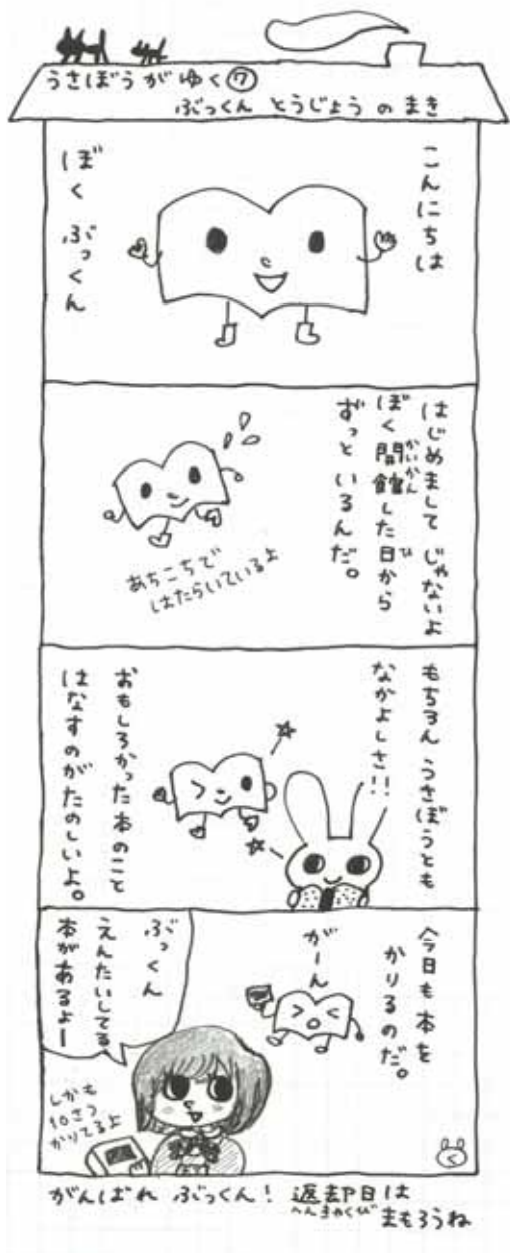 うさぼうがゆく⑦
ぶっくん とうじょう の まき
こんにちは
ぼく ぶっくん
はじめまして じゃないよ
ぼく開館した日から
かいかん
ひ
ずっと いるんだ。
あちこちで
はたらいているよ
もちろん うさぼうとも
なかよしさ!!
おもしろかった本のこと
はなすのがたのしいよ。
今日も本を
かりるのだ。
がーん
ぶっくん
えんたいしてる
本があるよー
しかも
10さつ
かりてるよ
く
がんばれ ぶっくん! 返却日は
へんきゃくび
まもろうね